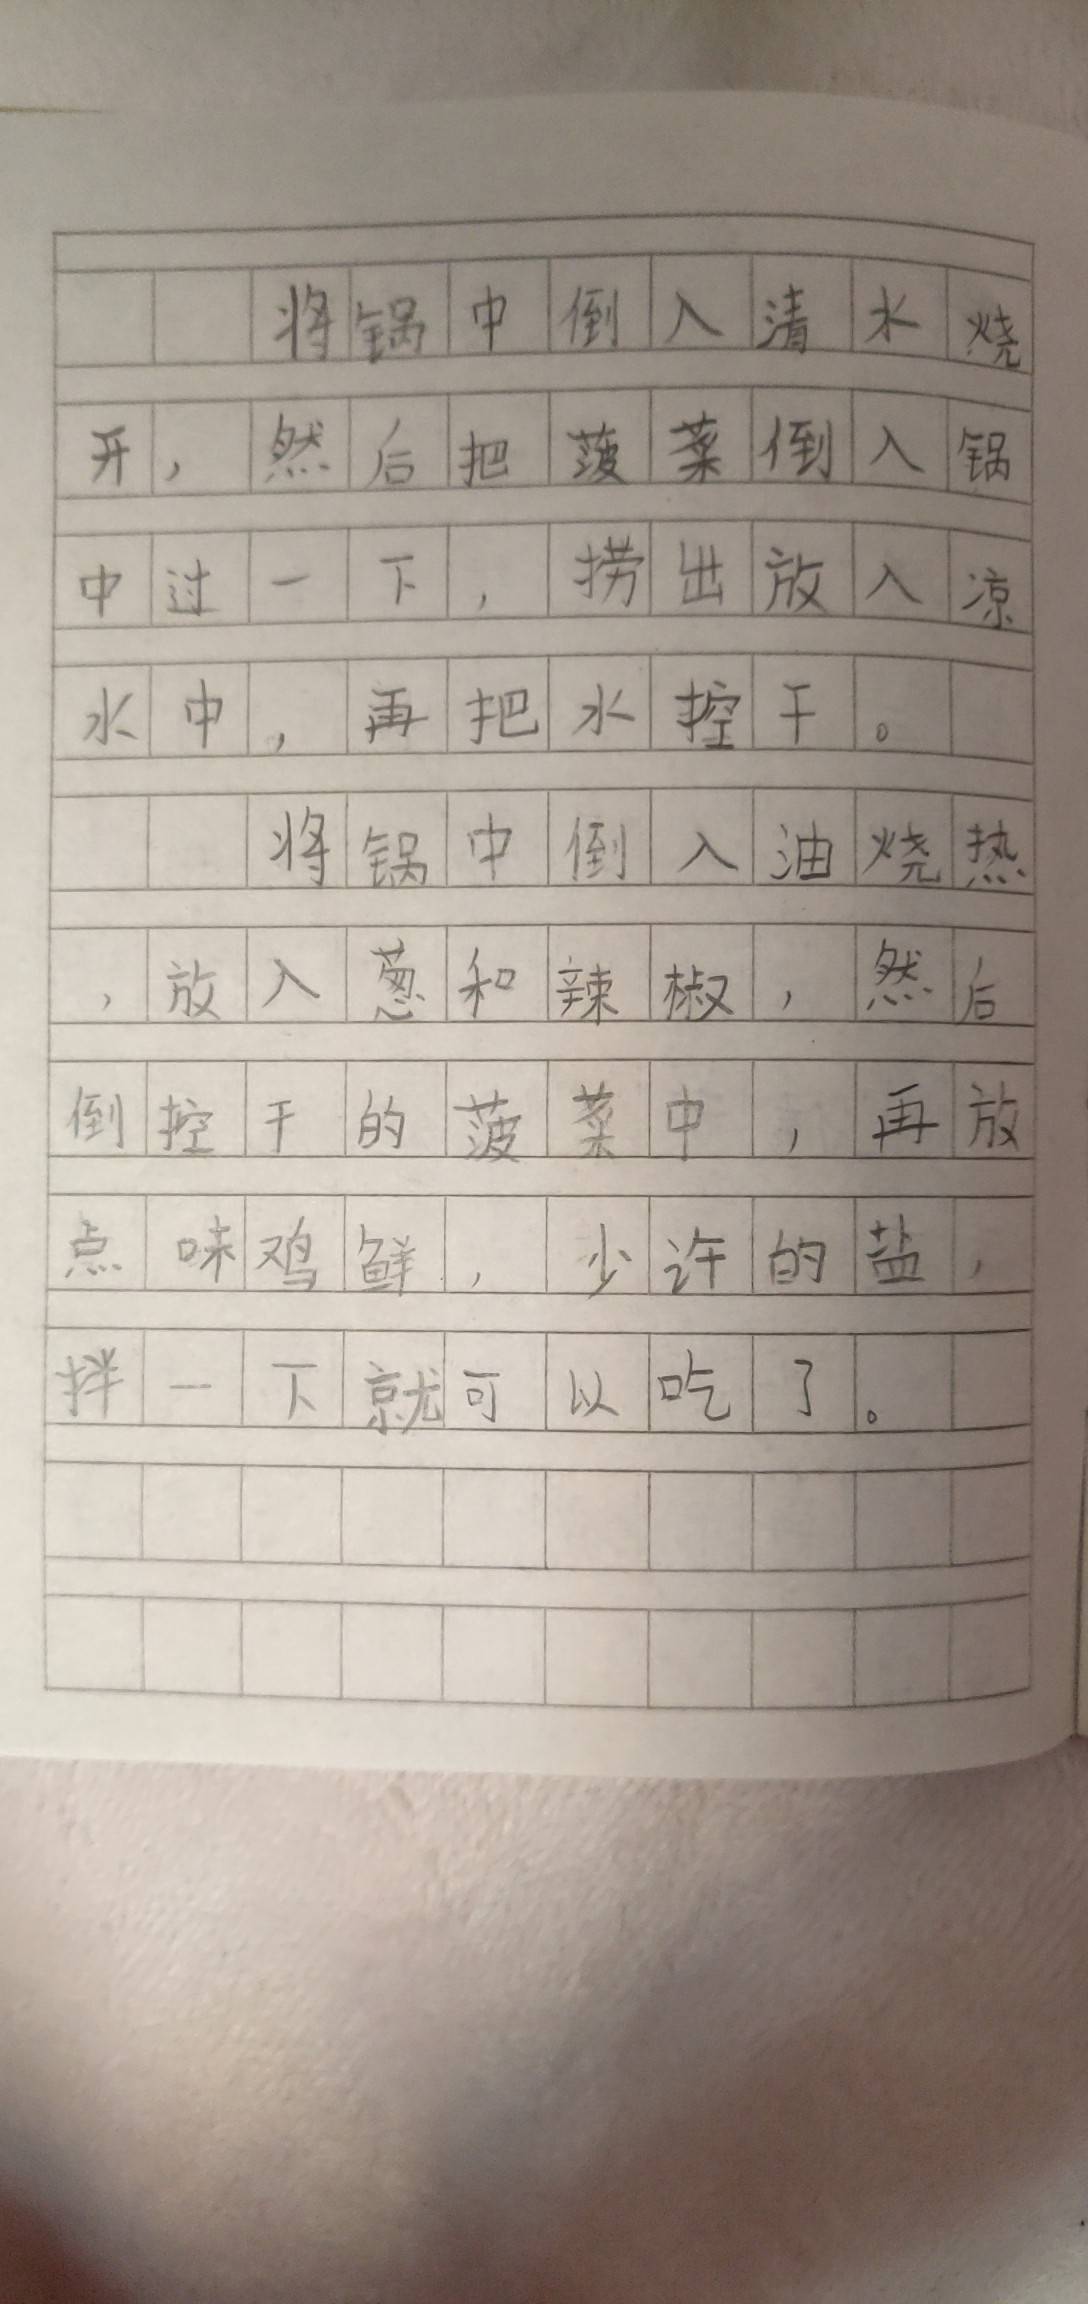 将锅中倒入清水烧
开，然后把菠菜倒入锅
中过一下，捞出放入凉
水中，再把水控干。
将锅中倒入油烧热
，放入葱和辣椒，然后
倒控干的菠菜中，再放
点味鸡鲜，少许的盐，
拌一下就可以吃了。